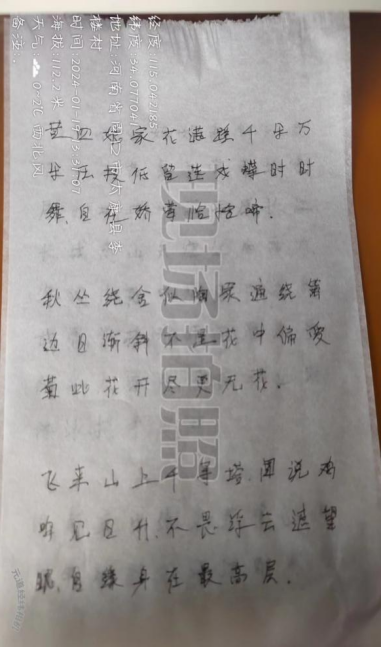 黄四娘家花满蹊千朵万
朵压枝低留连戏蝶时时
舞,自在娇莺恰恰啼.
秋丛绕舍似陶家遍绕篱
边日渐斜不是花中偏爱
菊此花开尽更无花.
飞来山上千寻塔,闻说鸡
鸣见日升,不畏浮云遮望
眼,自缘身在最高层.
现场拍照
经度:115.042785
纬度:34.0770
地址:河南省
楼村
时间:2024-01-1
海拔:112.2米
天气:
备注:
元道经纬相机